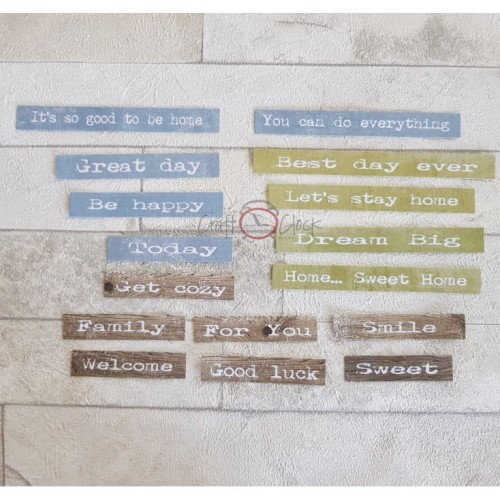 It's so good to be home
You can do everything
Great day
Best day ever
Be happy
Let's stay home
Craft Clock
Today
Dream Big
Get cozy
Home... Sweet Home
Family
For You
Smile
Welcome
Good luck
Sweet